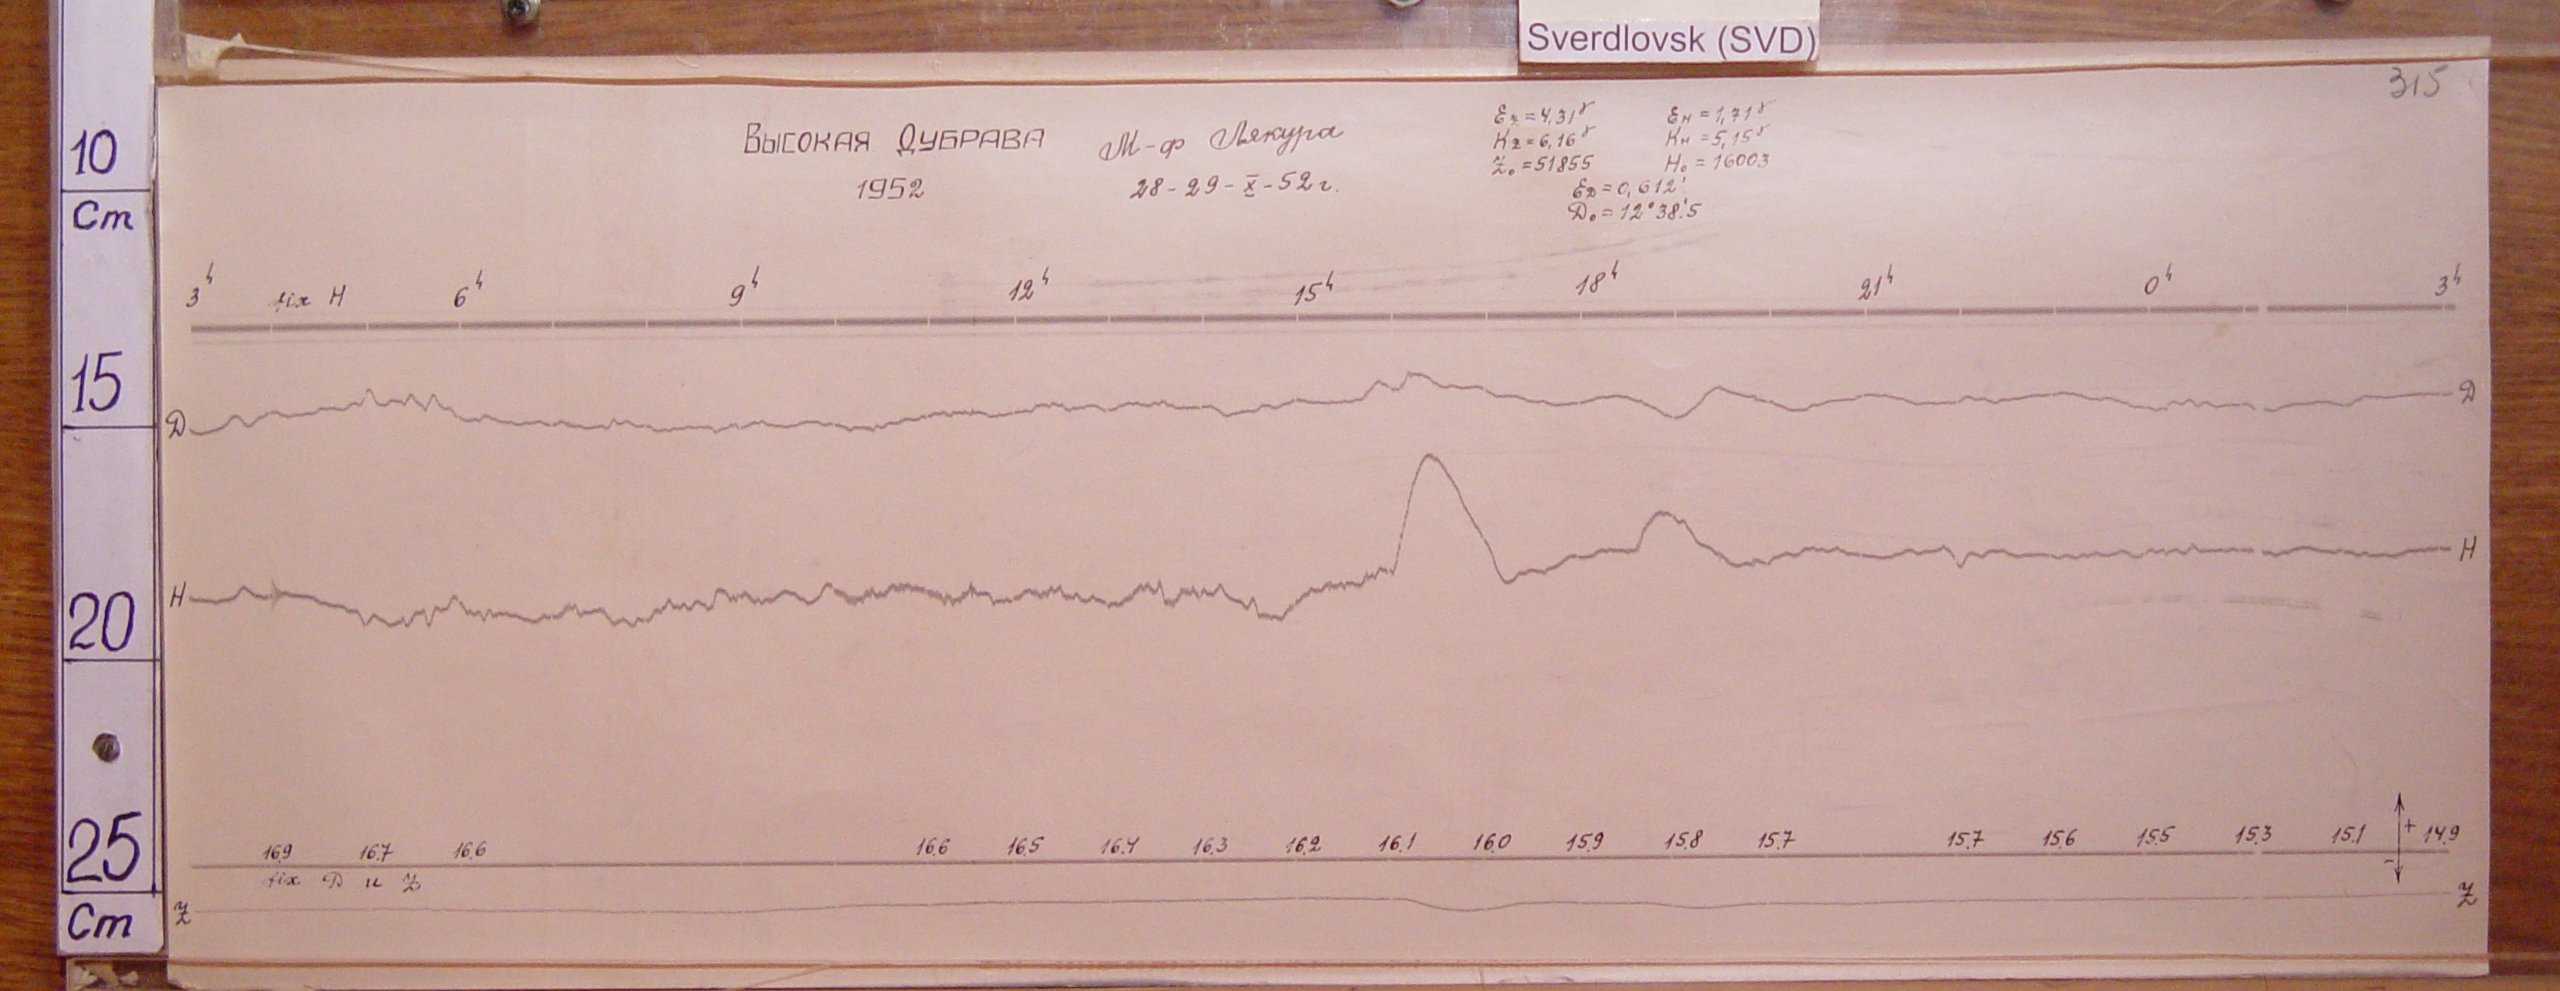 Sverdlovsk (SVD)
315
10
Cm
15
20
25
Cm
ВЫСОКАЯ ДУБРАВА М-ф Лякура
1952 28-29-X-52 г.
Ez=4,31γ EH=1,71γ
Kz=6,16γ KH=5,15γ
Z₀=51855 H₀=16003
EД=0,612'
Д₀=12°38.'5
3h fix H 6h 9h 12h 15h 18h 21h 0h 3h
Д Д
H H
16.9 16.7 16.6 16.6 16.5 16.4 16.3 16.2 16.1 16.0 15.9 15.8 15.7 15.7 15.6 15.5 15.3 15.1 + 14.9
-
fix Д и Z
Z Z